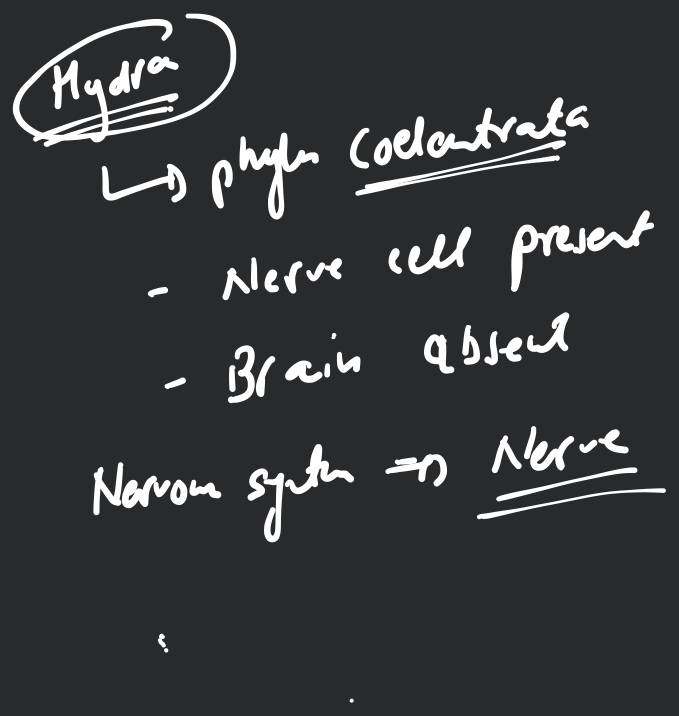 Hydra
↳ phylum Coelentrata
- Nerve cell present
- Brain absent
Nervous system ⇒ Nerve